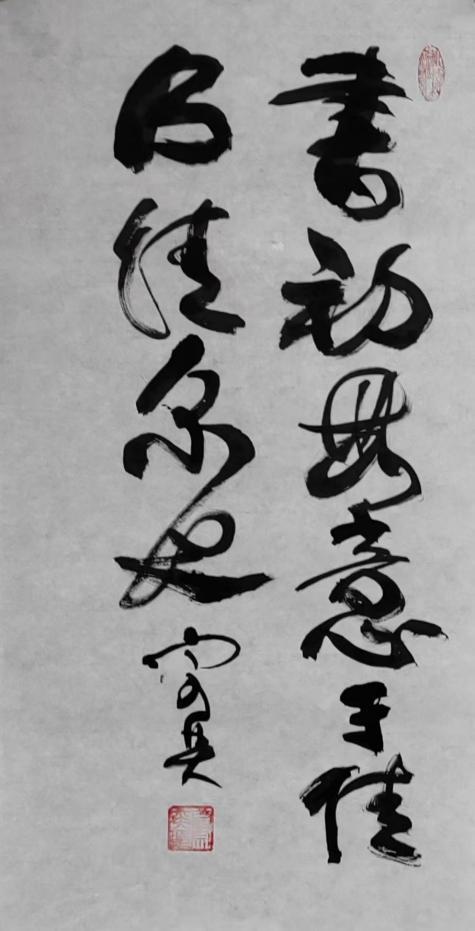 書初無意于佳
乃佳尔